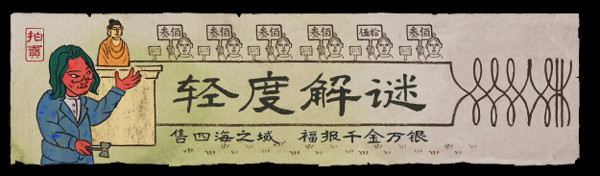 拍賣
叁佰 叁佰 叁佰 叁佰 伍拾 叁佰
轻度解谜
售四海之域 福报千金万银